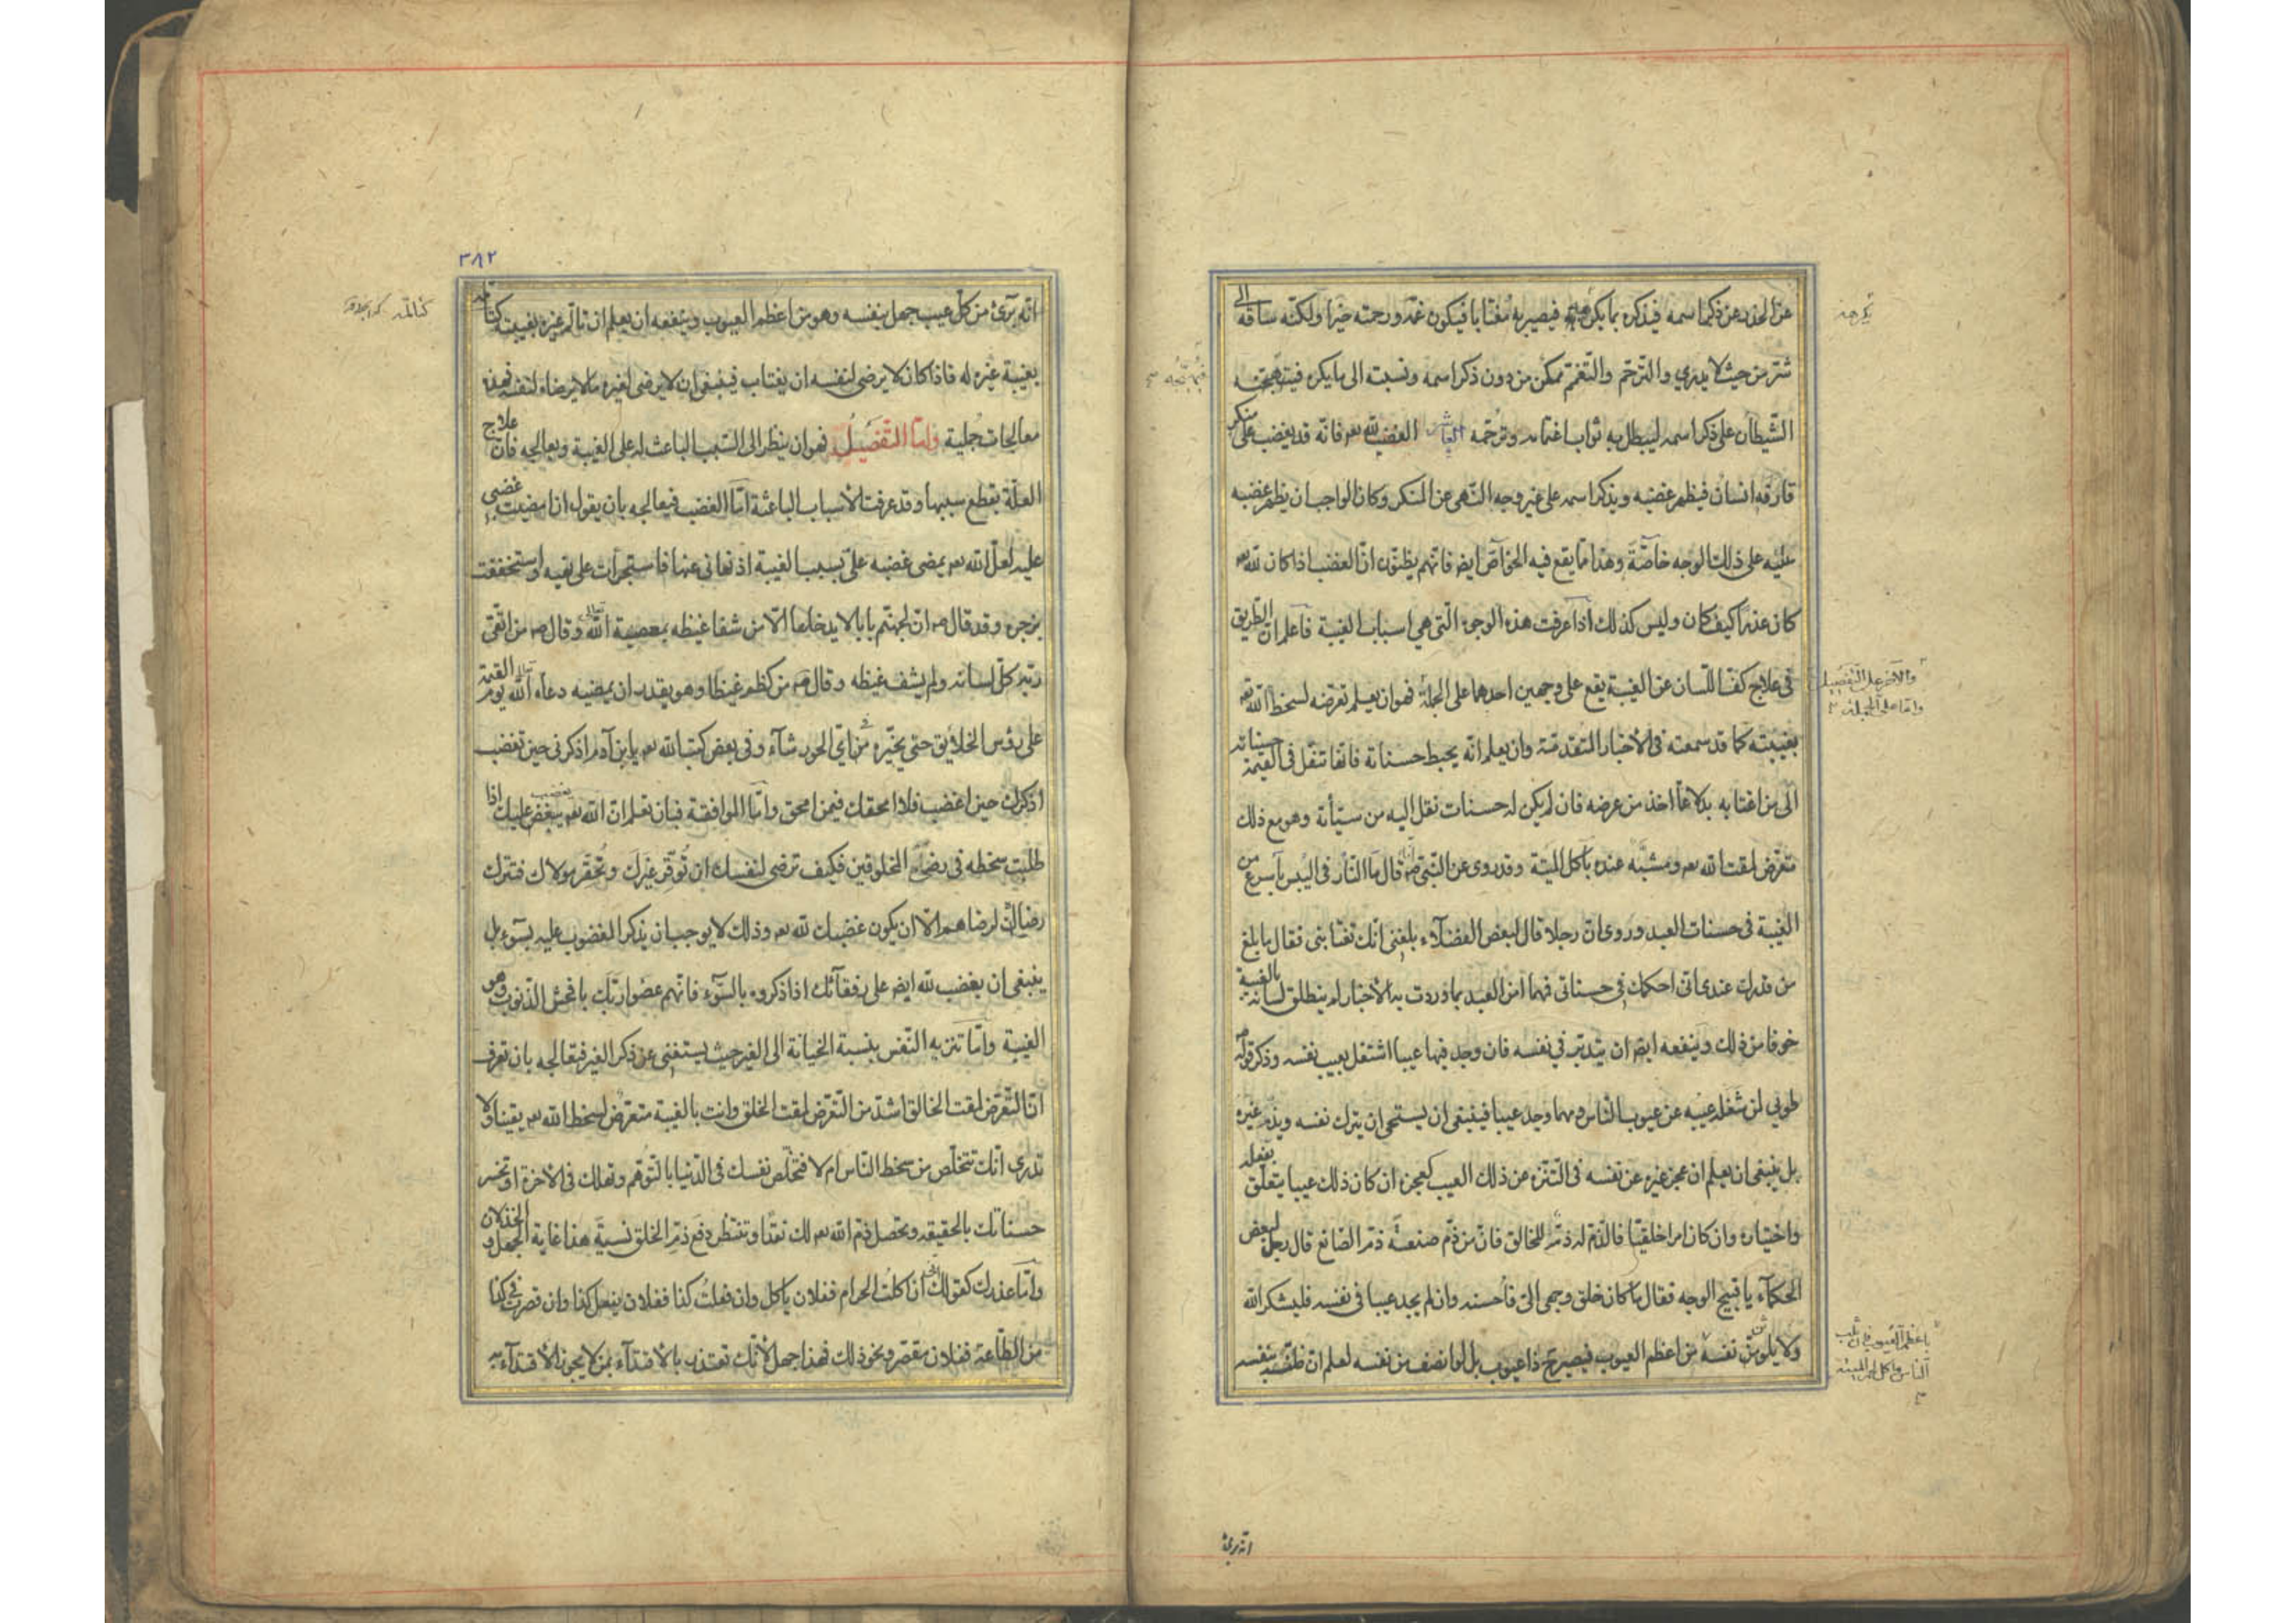 عن الحذر عن ذكر اسمه فيذكره بما يكره فيصير به مغتابا فيكون غمّه ورحمته خيرا ولكنّه ساقه الى
شرّ من حيث لا يدري والترحّم والتغمّم ممكن من دون ذكر اسمه ونسبته الى ما يكره فيهيّجه
الشيطان على ذكر اسمه ليبطل به ثواب اغتمامه وترحّمه العاشر الغضب لله تعـ فانّه قد يغضب على منكر
قارفه انسان فيظهر غضبه ويذكر اسمه على غير وجه النهى عن المنكر وكان الواجب ان يظهر غضبه
عليه على ذلك الوجه خاصّة وهذا ممّا يقع فيه الخواصّ ايضـ فانّهم يظنّون انّ الغضب اذا كان لله تعـ
كان عذرا كيف كان وليس كذلك اذا عرفت هذه الوجوه الّتى هى اسباب الغيبة فاعلم انّ الطريق
فى علاج كفّ اللّسان عن الغيبة يقع على وجهين احدهما على الجملة فهو ان يعلم تعرّضه لسخط الله تعـ
والآخر على التفصيل
وامّا على الجملة
بغيبته كما قد سمعته فى الأخبار المتقدّمة وان يعلم انّه يحبط حسناته فانّها تنقل فى القيمة حسناته
الى من اغتابه بدلا عمّا اخذ من عرضه فان لم يكن له حسنات نقل اليه من سيّأته وهو مع ذلك
متعرّض لمقت الله تعـ ومشبّه عنده بآكل الميتة وقد روى عن النّبى صـ انّه قال ما النّار فى اليبس بأسرع من
الغيبة فى حسنات العبد وروى انّ رجلا قال لبعض الفضلآء بلغنى انّك تغتابنى فقال ما بلغ
من قدرك عندى انّى احكّمك فى حسناتى فمهما امن العبد بما وردت به الأخبار لم ينطلق لسانه بالغيبة
خوفا من ذلك وينفعه ايضـ ان يتدبّر فى نفسه فان وجد فيها عيبا اشتغل بعيب نفسه وذكر قوله صـ
طوبى لمن شغله عيبه عن عيوب النّاس ومهما وجد عيبا فينبغى ان يستحى ان يترك نفسه ويذمّ غيره
بل ينبغى ان يعلم ان عجز غيره عن نفسه فى التنزّه عن ذلك العيب كعجزه ان كان ذلك عيبا يتعلّق بفعله
واختياره وان كان امرا خلقيّا فالذّم له ذمّ للخالق فانّ من ذمّ صنعة ذمّ الصّانع قال رجل لبعض
الحكمآء يا قبيح الوجه فقال ما كان خلق وجهى الىّ فأحسنه وان لم يجد عيبا فى نفسه فليشكر الله
ولا يلوّثنّ نفسه من اعظم العيوب فيصير حـ ذا عيوب بل لو انصف من نفسه لعلم ان ظنّه بنفسه
باعظم العيوب فان ثلب
النّاس واكل لحم الميتة
انّه برئ
٣٨٢
انّه برئ من كلّ عيب جهل بنفسه وهو من اعظم العيوب وينفعه ان يعلم ان تألّم غيره بغيبته كتألمه
بغيبة غيره له فاذا كان لا يرضى لنفسه ان يغتاب فينبغى ان لا يرضى لغيره ما لا يرضاه لنفسه فهذه
معالجات جملية وامّا التفصيل فهو ان ينظر الى السّبب الباعث له على الغيبة ويعالجه فان علاج
العلّة بقطع سببها وقد عرفت الأسباب الباعثة امّا الغضب فيعالجه بان يقول ان امضيت غضبى
عليه لعلّ الله تعـ يمضى غضبه علىّ بسبب الغيبة اذ نهانى عنها فاستجرأت على نهيه واستخففت
بزجره وقد قال صـ انّ لجهنّم بابا لا يدخلها الّا من شفا غيظه بمعصية الله تعالى وقال صـ من اتّقى
ربّه كلّ لسانه ولم يشف غيظه وقال صـ من كظم غيظا وهو يقدر ان يمضيه دعاه الله تعالى يوم القيمة
على رؤس الخلائق حتى يخيّره فى اىّ الحور شآء وفى بعض كتب الله تعـ يابن آدم اذكرنى حين تغضب
اذكرك حين اغضب فلا امحقك فيمن امحق وامّا الموافقة فبان تعلم انّ الله تعـ يغضب عليك اذا
طلبت سخطه فى رضى المخلوقين فكيف ترضى لنفسك ان تُوقّر غيرك وتُحقّر مولاك فتترك
رضاك لرضاهم الّا ان يكون غضبك لله تعـ وذلك لا يوجب ان يذكر المغضوب عليه بسوء بل
ينبغى ان يغضب لله ايضـ على رفقآئك اذا ذكروه بالسّوء فانّهم عصوا ربّك بافحش الذنوب وهو
الغيبة وامّا تنزيه النّفس بنسبة الخيانة الى الغير حيث يستغنى عن ذكر الغير فتعالجه بان تعرف
انّ التعرّض لمقت الخالق اشدّ من التعرّض لمقت الخلق وانت بالغيبة متعرّض لسخط الله تعـ يقينا ولا
تدرى انّك تتخلّص من سخط النّاس ام لا فتخلّص نفسك فى الدّنيا بالتوهّم وتهلك فى الأخرة او تخسر
حسناتك بالحقيقة وتحصل ذمّ الله تعـ لك نقدا وتنتظر دفع ذمّ الخلق نسيةً هذا غاية الجهل والخذلان
وامّا عذرك كقولك انّى ان اكلت الحرام ففلان يأكل وان فعلتُ كذا ففلان يفعل كذا وان قصرت فى كذا
من الطّاعة ففلان مقصّر ونحو ذلك فهذا جهل لأنّك تعتذر بالأقتدآء بمن لا يجوز الأقتدآء به